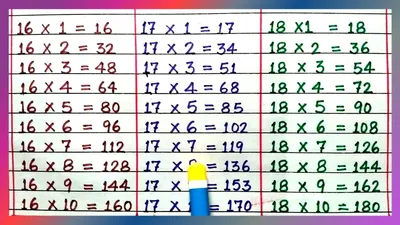 16 × 1 = 16
16 × 2 = 32
16 × 3 = 48
16 × 4 = 64
16 × 5 = 80
16 × 6 = 96
16 × 7 = 112
16 × 8 = 128
16 × 9 = 144
16 × 10 = 160
17 × 1 = 17
17 × 2 = 34
17 × 3 = 51
17 × 4 = 68
17 × 5 = 85
17 × 6 = 102
17 × 7 = 119
17 × = 136
17 × = 153
17 × = 170
18 × 1 = 18
18 × 2 = 36
18 × 3 = 54
18 × 4 = 72
18 × 5 = 90
18 × 6 = 108
18 × 7 = 126
18 × 8 = 144
18 × 9 = 162
18 × 10 = 180